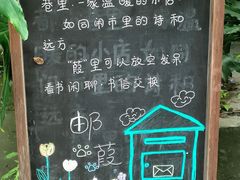 巷里·一家温暖的小店
如同闹市里的诗和
远方
"葭"里可以放空发呆
看书闲聊·书信交换
邮
葭